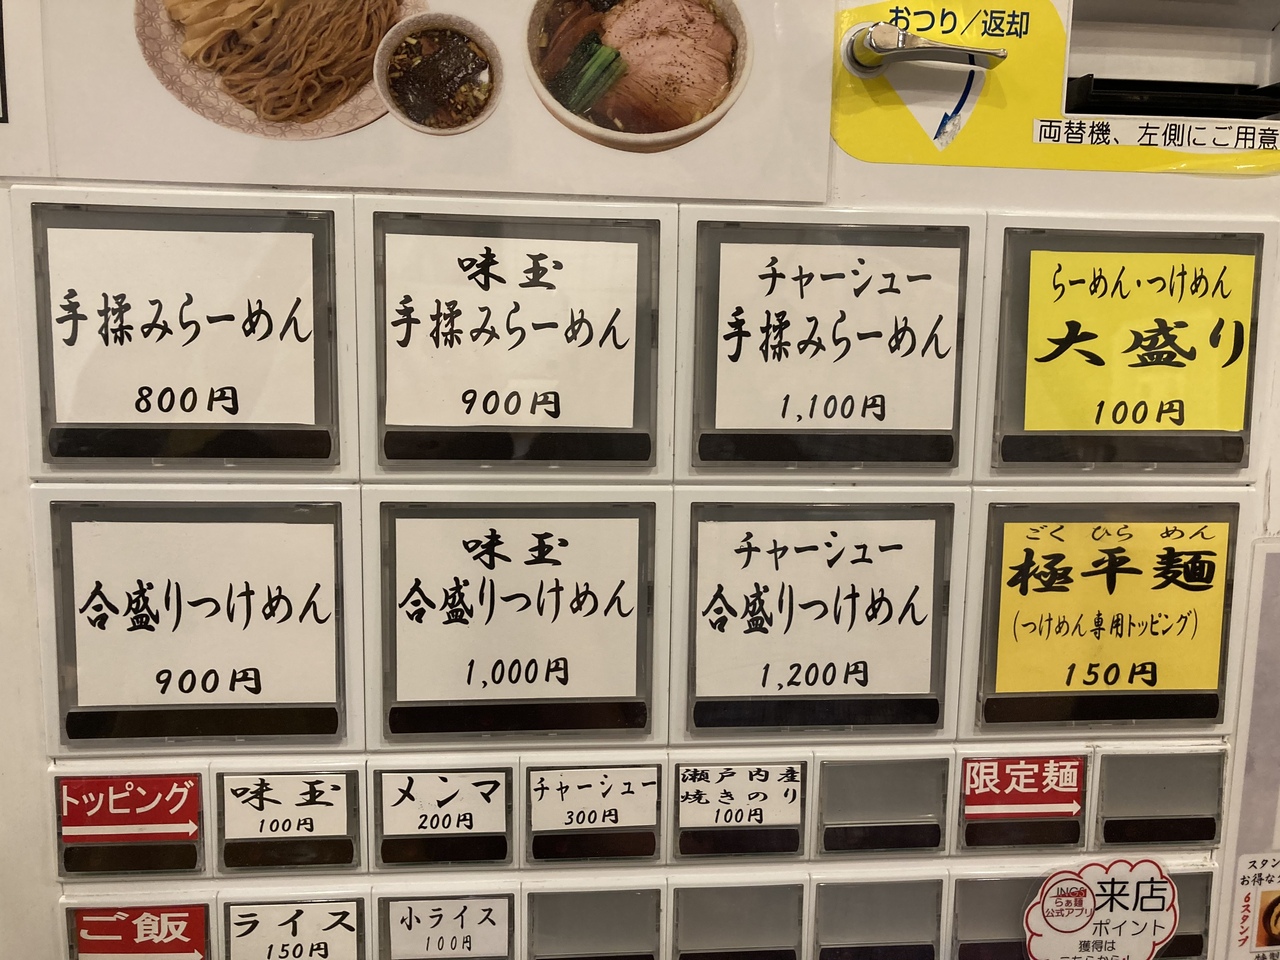 おつり/返却
両替機、左側にご用意
手揉みらーめん
800円
味玉
手揉みらーめん
900円
チャーシュー
手揉みらーめん
1,100円
らーめん・つけめん
大盛り
100円
合盛りつけめん
900円
味玉
合盛りつけめん
1,000円
チャーシュー
合盛りつけめん
1,200円
ごく ひら めん
極平麺
(つけめん専用トッピング)
150円
トッピング
味玉
100円
メンマ
200円
チャーシュー
300円
瀬戸内産
焼きのり
100円
限定麺
ご飯
ライス
150円
小ライス
100円
INGS
らぁ麺
公式アプリ
来店
ポイント
獲得は
こちらから!
スタン
お得な
6スタンプ